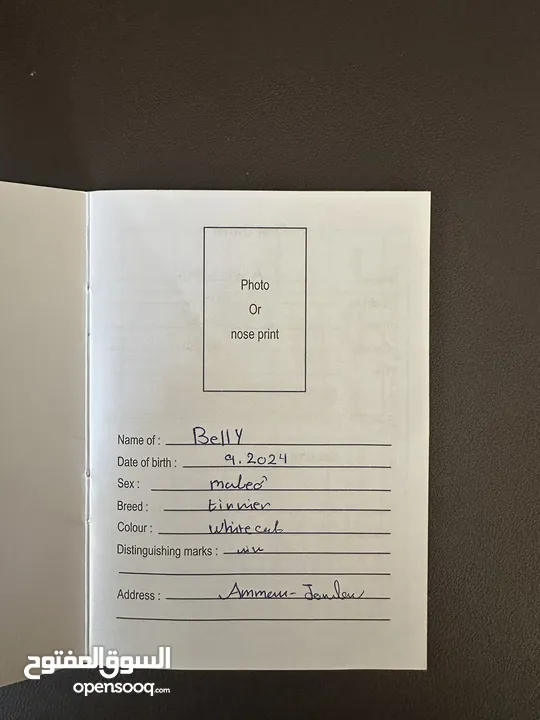 Photo
Or
nose print
Name of : Belly
Date of birth : 9.2024
Sex : male
Breed :
Colour : white
Distinguishing marks :
Address : Amman - Jordan
السوق المفتوح
opensooq.com